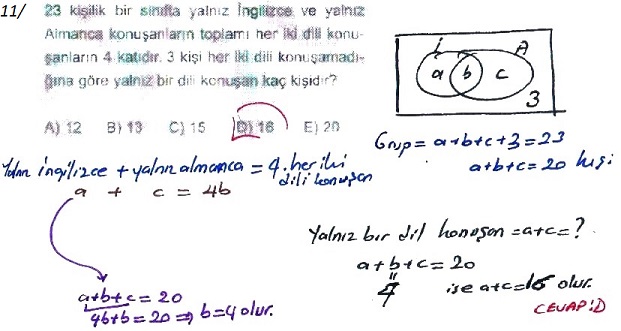 11/ 23 kişilik bir sınıfta yalnız İngilizce ve yalnız
Almanca konuşanların toplamı her iki dili konu-
şanların 4 katıdır. 3 kişi her iki dili konuşamadı-
ğına göre yalnız bir dili konuşan kaç kişidir?
A) 12 B) 13 C) 15 D) 16 E) 20
İ A
a b c
3
Grup = a+b+c+3 = 23
a+b+c = 20 kişi
Yalnız ingilizce + yalnız almanca = 4. her iki
dili konuşan
a + c = 4b
a+b+c = 20
4b+b = 20 ⇒ b=4 olur.
Yalnız bir dil konuşan = a+c = ?
a+b+c = 20
4 ise a+c=16 olur.
CEVAP:D